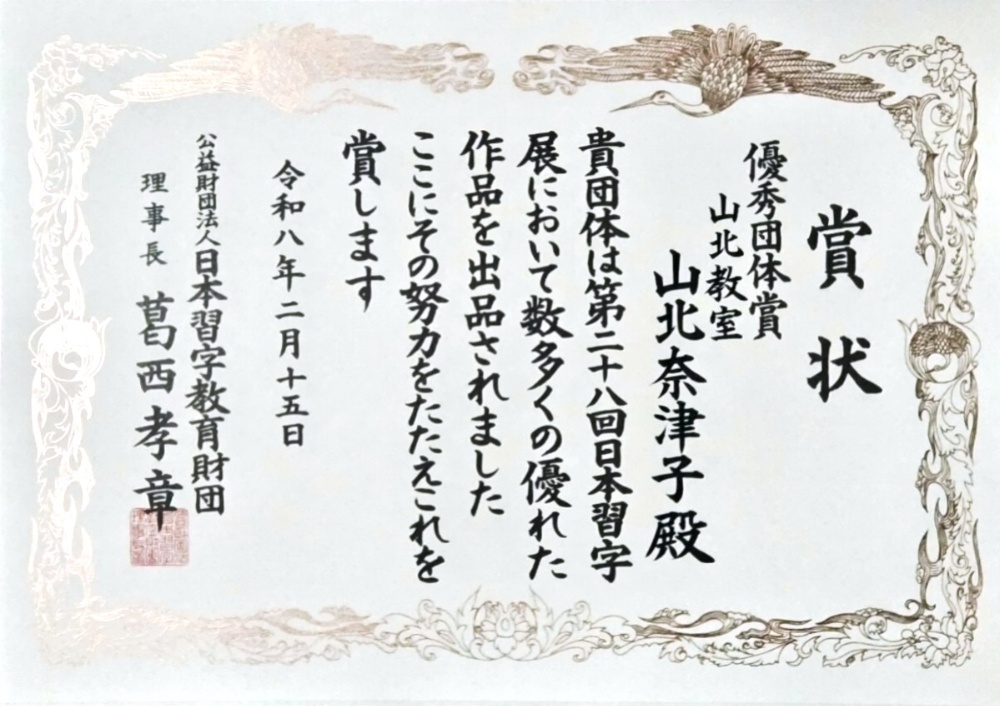 賞状
優秀団体賞
山北教室
山北奈津子殿
貴団体は第二十八回日本習字
展において数多くの優れた
作品を出品されました
ここにその努力をたたえこれを
賞します
令和八年二月十五日
公益財団法人日本習字教育財団
理事長 葛西孝章